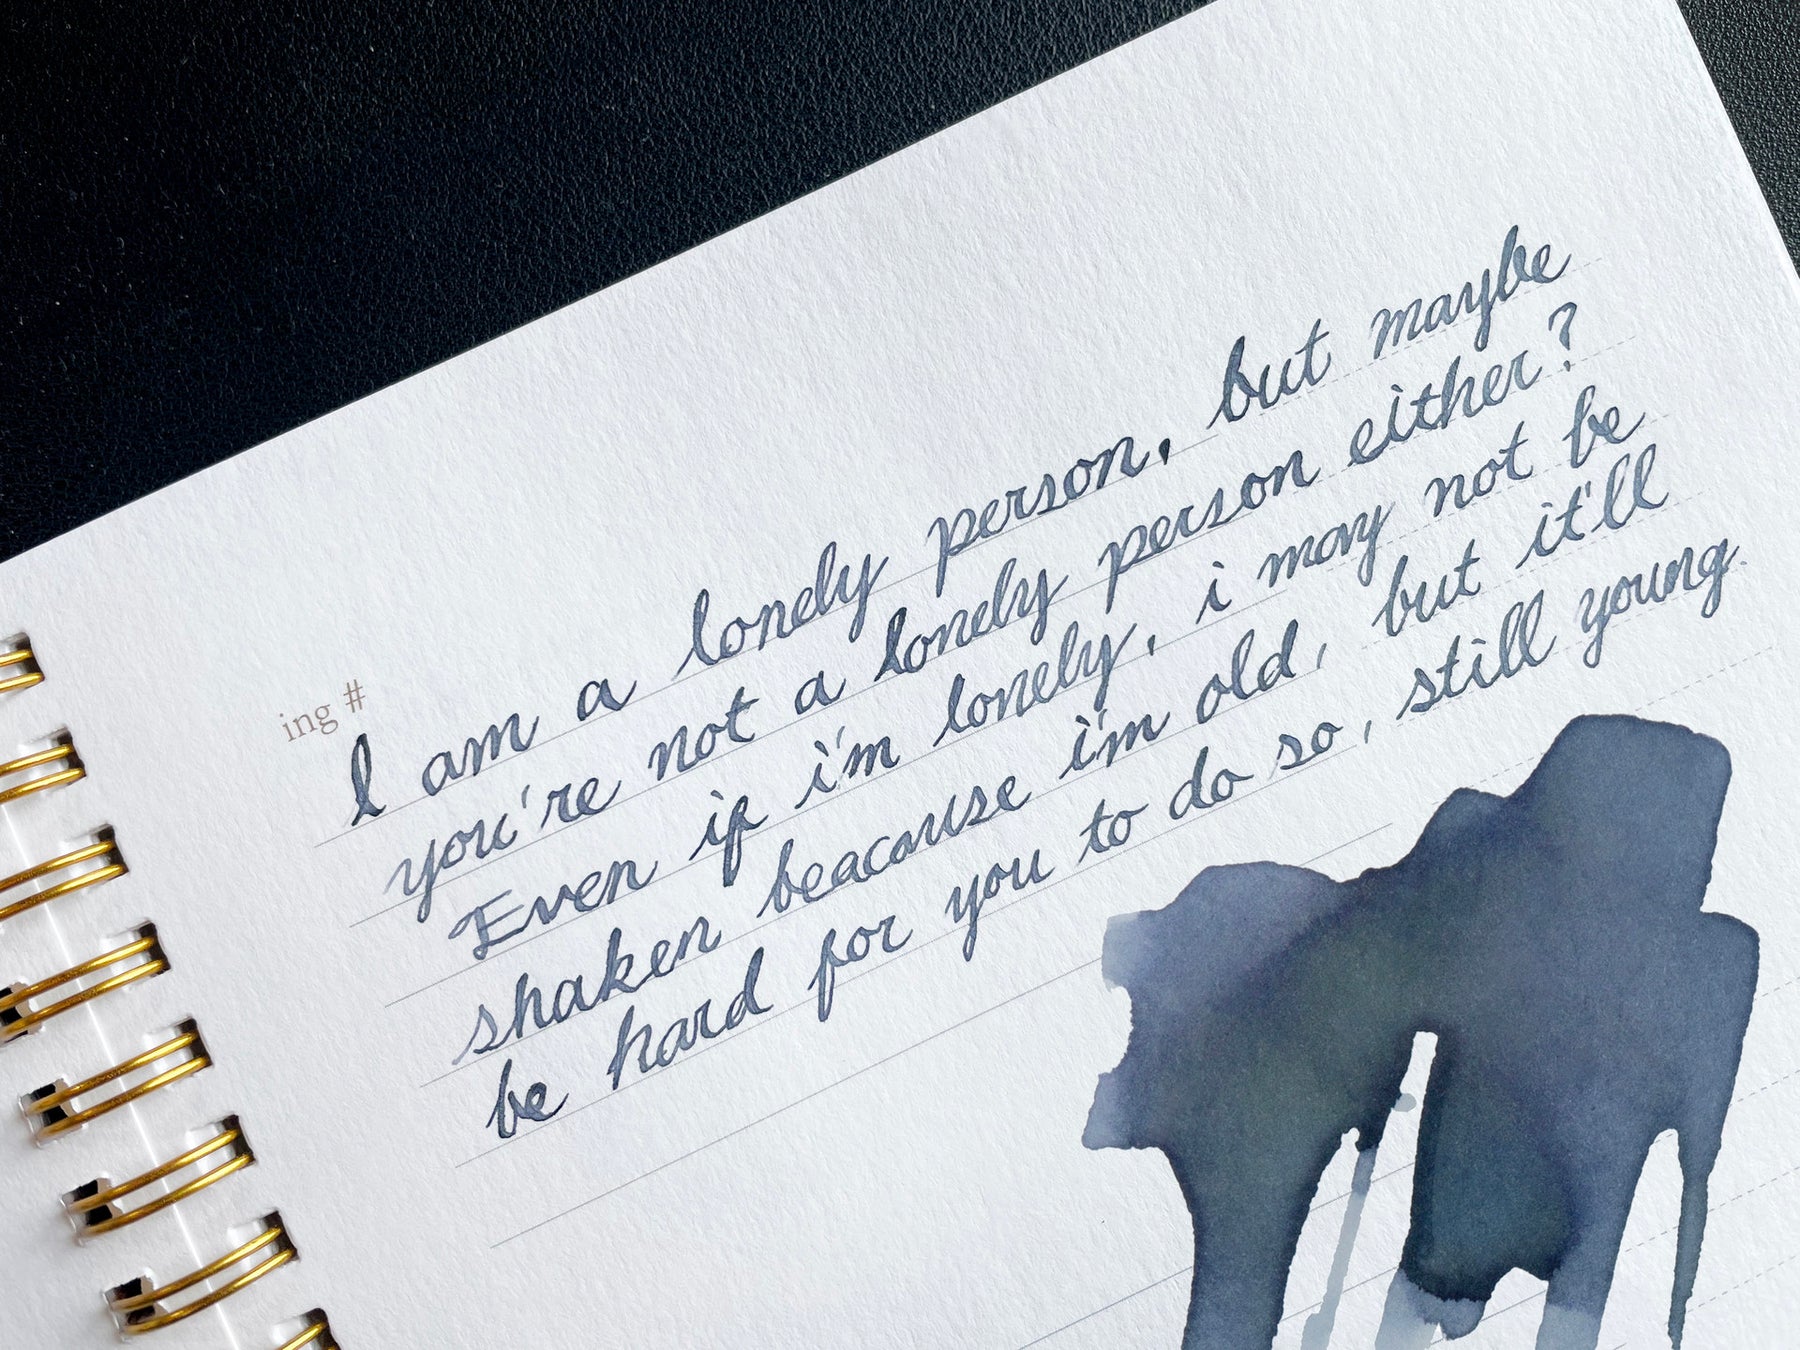 ing #
I am a lonely person, but maybe
you're not a lonely person either?
Even if i'm lonely, i may not be
shaken beacause i'm old, but it'll
be hard for you to do so, still young.